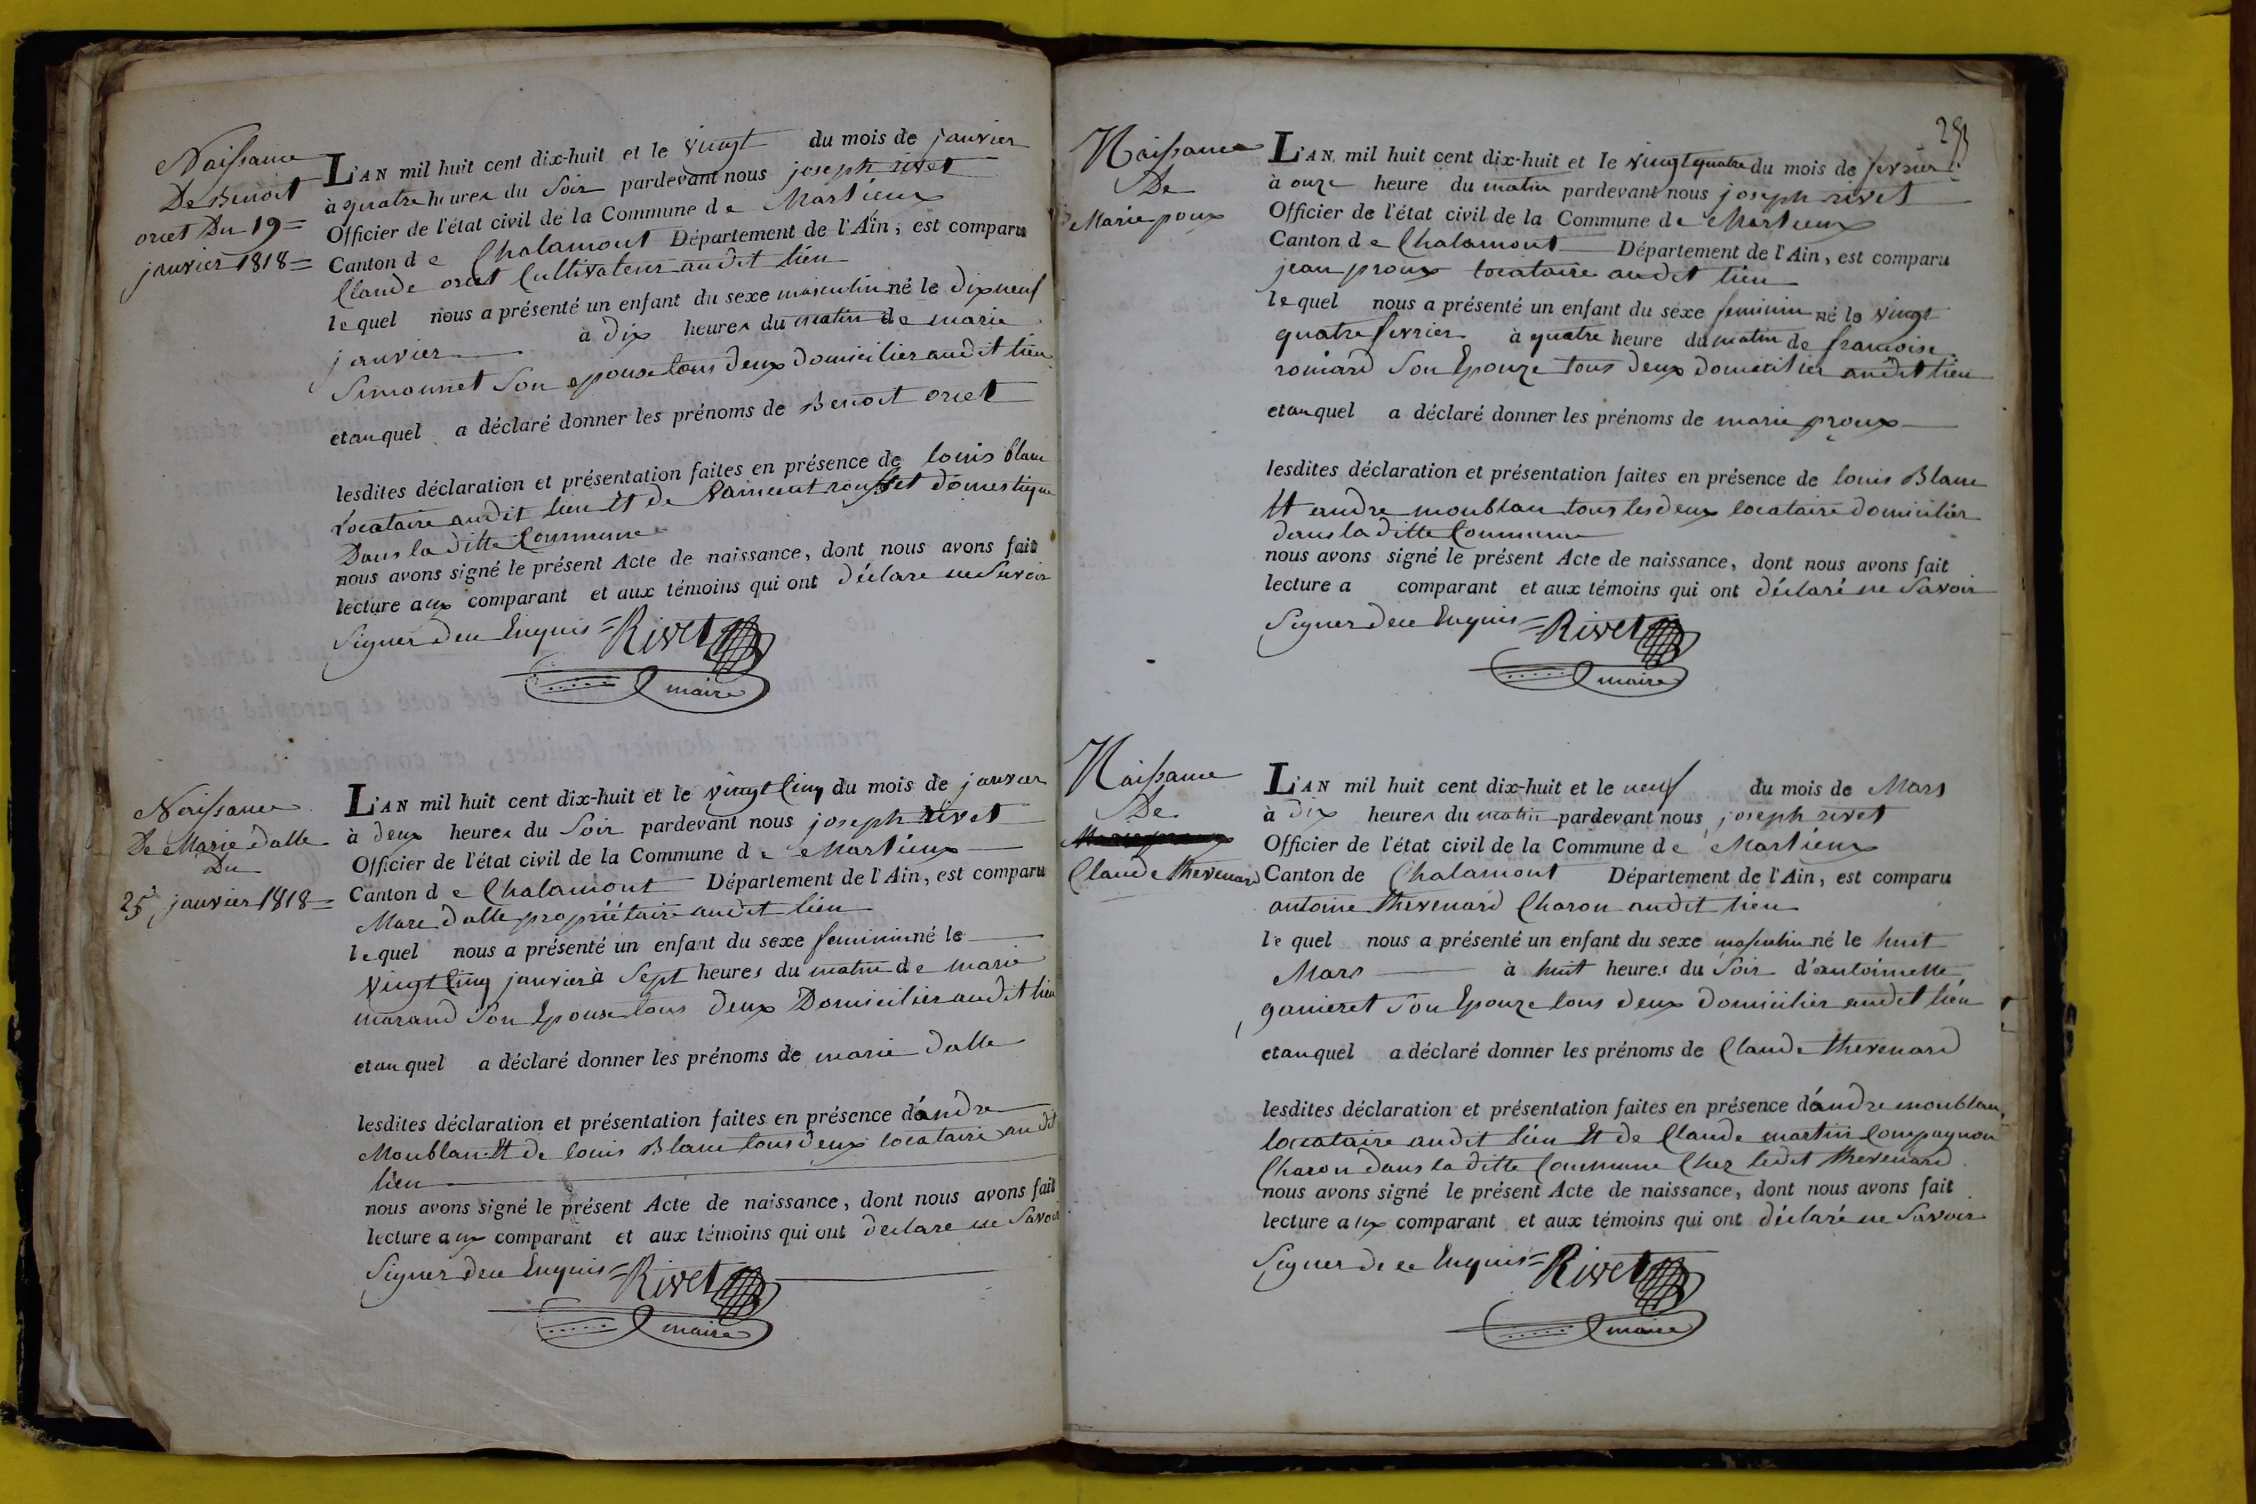 Naissance
De Benoit
oriet Du 19=
janvier 1818=
L'AN mil huit cent dix-huit et le vingt du mois de janvier
à quatre heures du Soir pardevant nous joseph rivet
Officier de l'état civil de la Commune de Marlieux
Canton de Chalamont Département de l'Ain, est comparu
Claude oriet Cultivateur audit lieu
lequel nous a présenté un enfant du sexe masculin né le dixneuf
janvier à dix heures du matin de marie
Simonnet Son epouse tous deux domicilier audit lieu
et auquel a déclaré donner les prénoms de Benoit oriet
lesdites déclaration et présentation faites en présence de louis blanc
Locataire audit lieu Et de vaincent rousset domestique
Dans la ditte Commune
nous avons signé le présent Acte de naissance, dont nous avons fait
lecture aux comparant et aux témoins qui ont déclare ne Savoir
Signer de ce Enquis = Rivet
maire
Naissance
De Marie dalle
Du
25 janvier 1818=
L'AN mil huit cent dix-huit et le vingt Cinq du mois de janvier
à deux heures du Soir pardevant nous joseph rivet
Officier de l'état civil de la Commune de Marlieux
Canton de Chalamont Département de l'Ain, est comparu
Marc dalle propriétaire audit lieu
lequel nous a présenté un enfant du sexe feminin né le
vingt Cinq janvier à Sept heures du matin de marie
marand Son Epouse tous deux Domicilier audit lieu
et auquel a déclaré donner les prénoms de marie dalle
lesdites déclaration et présentation faites en présence d'andre
Moublan Et de louis Blanc tous deux locataire audit
lieu
nous avons signé le présent Acte de naissance, dont nous avons fait
lecture aux comparant et aux témoins qui ont declare ne Savoir
Signer de ce Enquis = Rivet
maire
Naissance
De
Marie poux
L'AN mil huit cent dix-huit et le vingt quatre du mois de fevrier
à onze heure du matin pardevant nous joseph rivet
Officier de l'état civil de la Commune de Marlieux
Canton de Chalamont Département de l'Ain, est comparu
jean proux locataire audit lieu
lequel nous a présenté un enfant du sexe feminin né le vingt
quatre fevrier à quatre heure du matin de francoise
roinard Son Epouze tous deux domicilier audit lieu
et auquel a déclaré donner les prénoms de marie proux
lesdites déclaration et présentation faites en présence de louis Blanc
Et andre moublan tous les deux locataire domicilier
dans la ditte Commune
nous avons signé le présent Acte de naissance, dont nous avons fait
lecture a comparant et aux témoins qui ont déclaré ne Savoir
Signer de ce Enquis = Rivet
maire
Naissance
De
Claude thevenard
L'AN mil huit cent dix-huit et le neuf du mois de Mars
à dix heures du matin pardevant nous joseph rivet
Officier de l'état civil de la Commune de Marlieux
Canton de Chalamont Département de l'Ain, est comparu
antoine thevenard Charon audit lieu
lequel nous a présenté un enfant du sexe masculin né le huit
Mars à huit heures du Soir d'antoinette
ganieret Son Epouze tous deux domicilier audit lieu
et auquel a déclaré donner les prénoms de Claude thevenard
lesdites déclaration et présentation faites en présence d'andre moublan,
locataire audit lieu Et de Claude martin Compagnon
Charon dans la ditte Commune Chez ledit thevenard
nous avons signé le présent Acte de naissance, dont nous avons fait
lecture aux comparant et aux témoins qui ont déclaré ne Savoir
Signer de ce Enquis = Rivet
maire